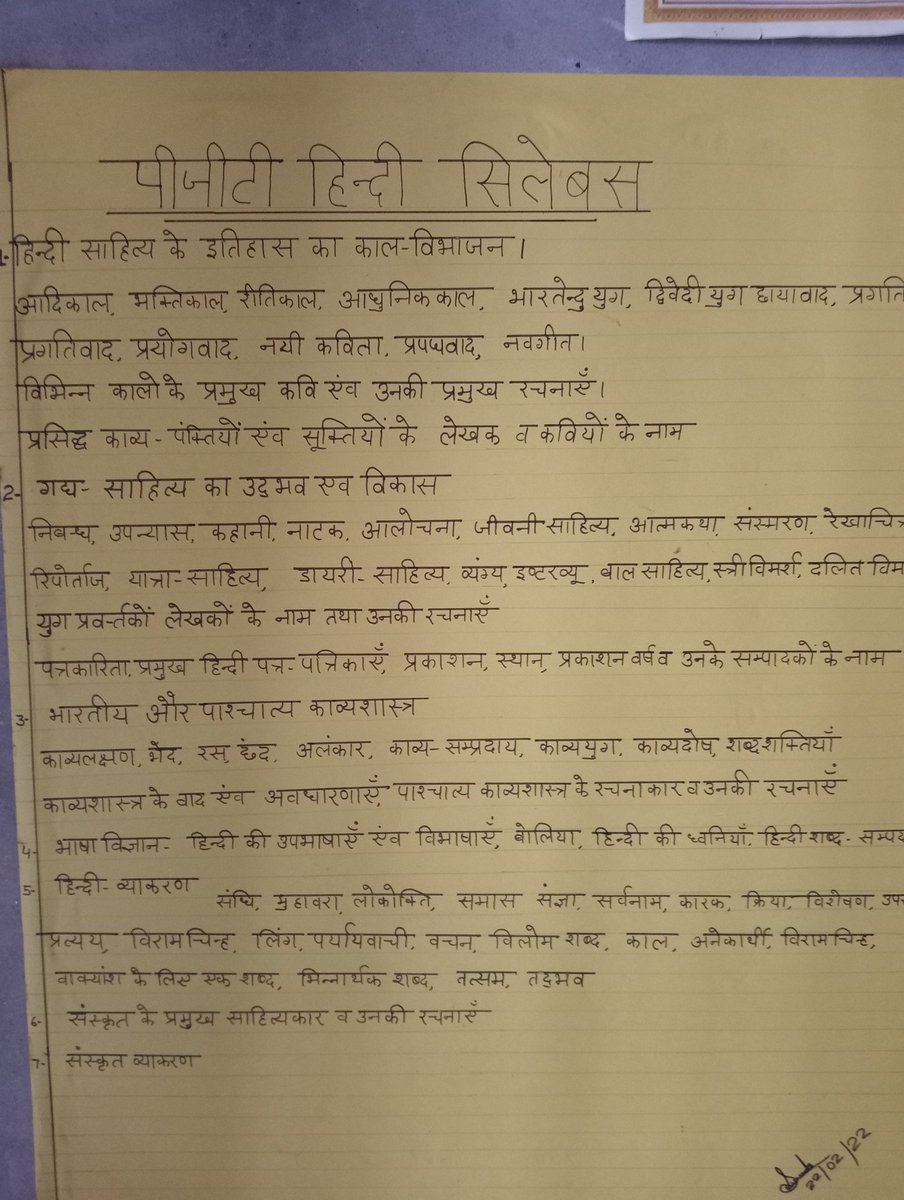 पीजीटी हिन्दी सिलेबस
1- हिन्दी साहित्य के इतिहास का काल-विभाजन।
आदिकाल, भक्तिकाल, रीतिकाल, आधुनिक काल, भारतेन्दु युग, द्विवेदी युग छायावाद, प्रगति
प्रगतिवाद, प्रयोगवाद, नयी कविता, प्रपद्यवाद, नवगीत।
विभिन्न कालो के प्रमुख कवि एंव उनकी प्रमुख रचनाएँ।
प्रसिद्ध काव्य-पंक्तियों एंव सूक्तियों के लेखक व कवियों के नाम
2- गद्य-साहित्य का उद्भव एव विकास
निबन्ध, उपन्यास, कहानी, नाटक, आलोचना, जीवनी साहित्य, आत्मकथा, संस्मरण, रेखाचित्र
रिपोर्ताज, यात्रा-साहित्य, डायरी-साहित्य, व्यंग्य, इण्टरव्यू, बाल साहित्य, स्त्री विमर्श, दलित विम
युग प्रवर्त्तकों लेखकों के नाम तथा उनकी रचनाएँ
पत्रकारिता, प्रमुख हिन्दी पत्र-पत्रिकाएँ, प्रकाशन, स्थान, प्रकाशन वर्ष व उनके सम्पादकों के नाम
3- भारतीय और पाश्चात्य काव्यशास्त्र
काव्यलक्षण, भेद, रस, छंद, अलंकार, काव्य-सम्प्रदाय, काव्ययुग, काव्यदोष, शब्द शक्तियाँ
काव्यशास्त्र के वाद एंव अवधारणाएँ, पाश्चात्य काव्यशास्त्र के रचनाकार व उनकी रचनाएँ
4- भाषा विज्ञान- हिन्दी की उपभाषाएँ एंव विभाषाएँ, बोलिया, हिन्दी की ध्वनियाँ, हिन्दी शब्द-सम्पद
5- हिन्दी-व्याकरण
संधि, मुहावरा, लोकोक्ति, समास संज्ञा, सर्वनाम, कारक, क्रिया, विशेषण, उपस
प्रत्यय, विरामचिन्ह, लिंग, पर्यायवाची, वचन, विलोम शब्द, काल, अनेकार्थी, विरामचिन्ह,
वाक्यांश के लिए एक शब्द, भिन्नार्थक शब्द, तत्सम, तद्भव
6- संस्कृत के प्रमुख साहित्यकार व उनकी रचनाएँ
7- संस्कृत व्याकरण
22/02/22